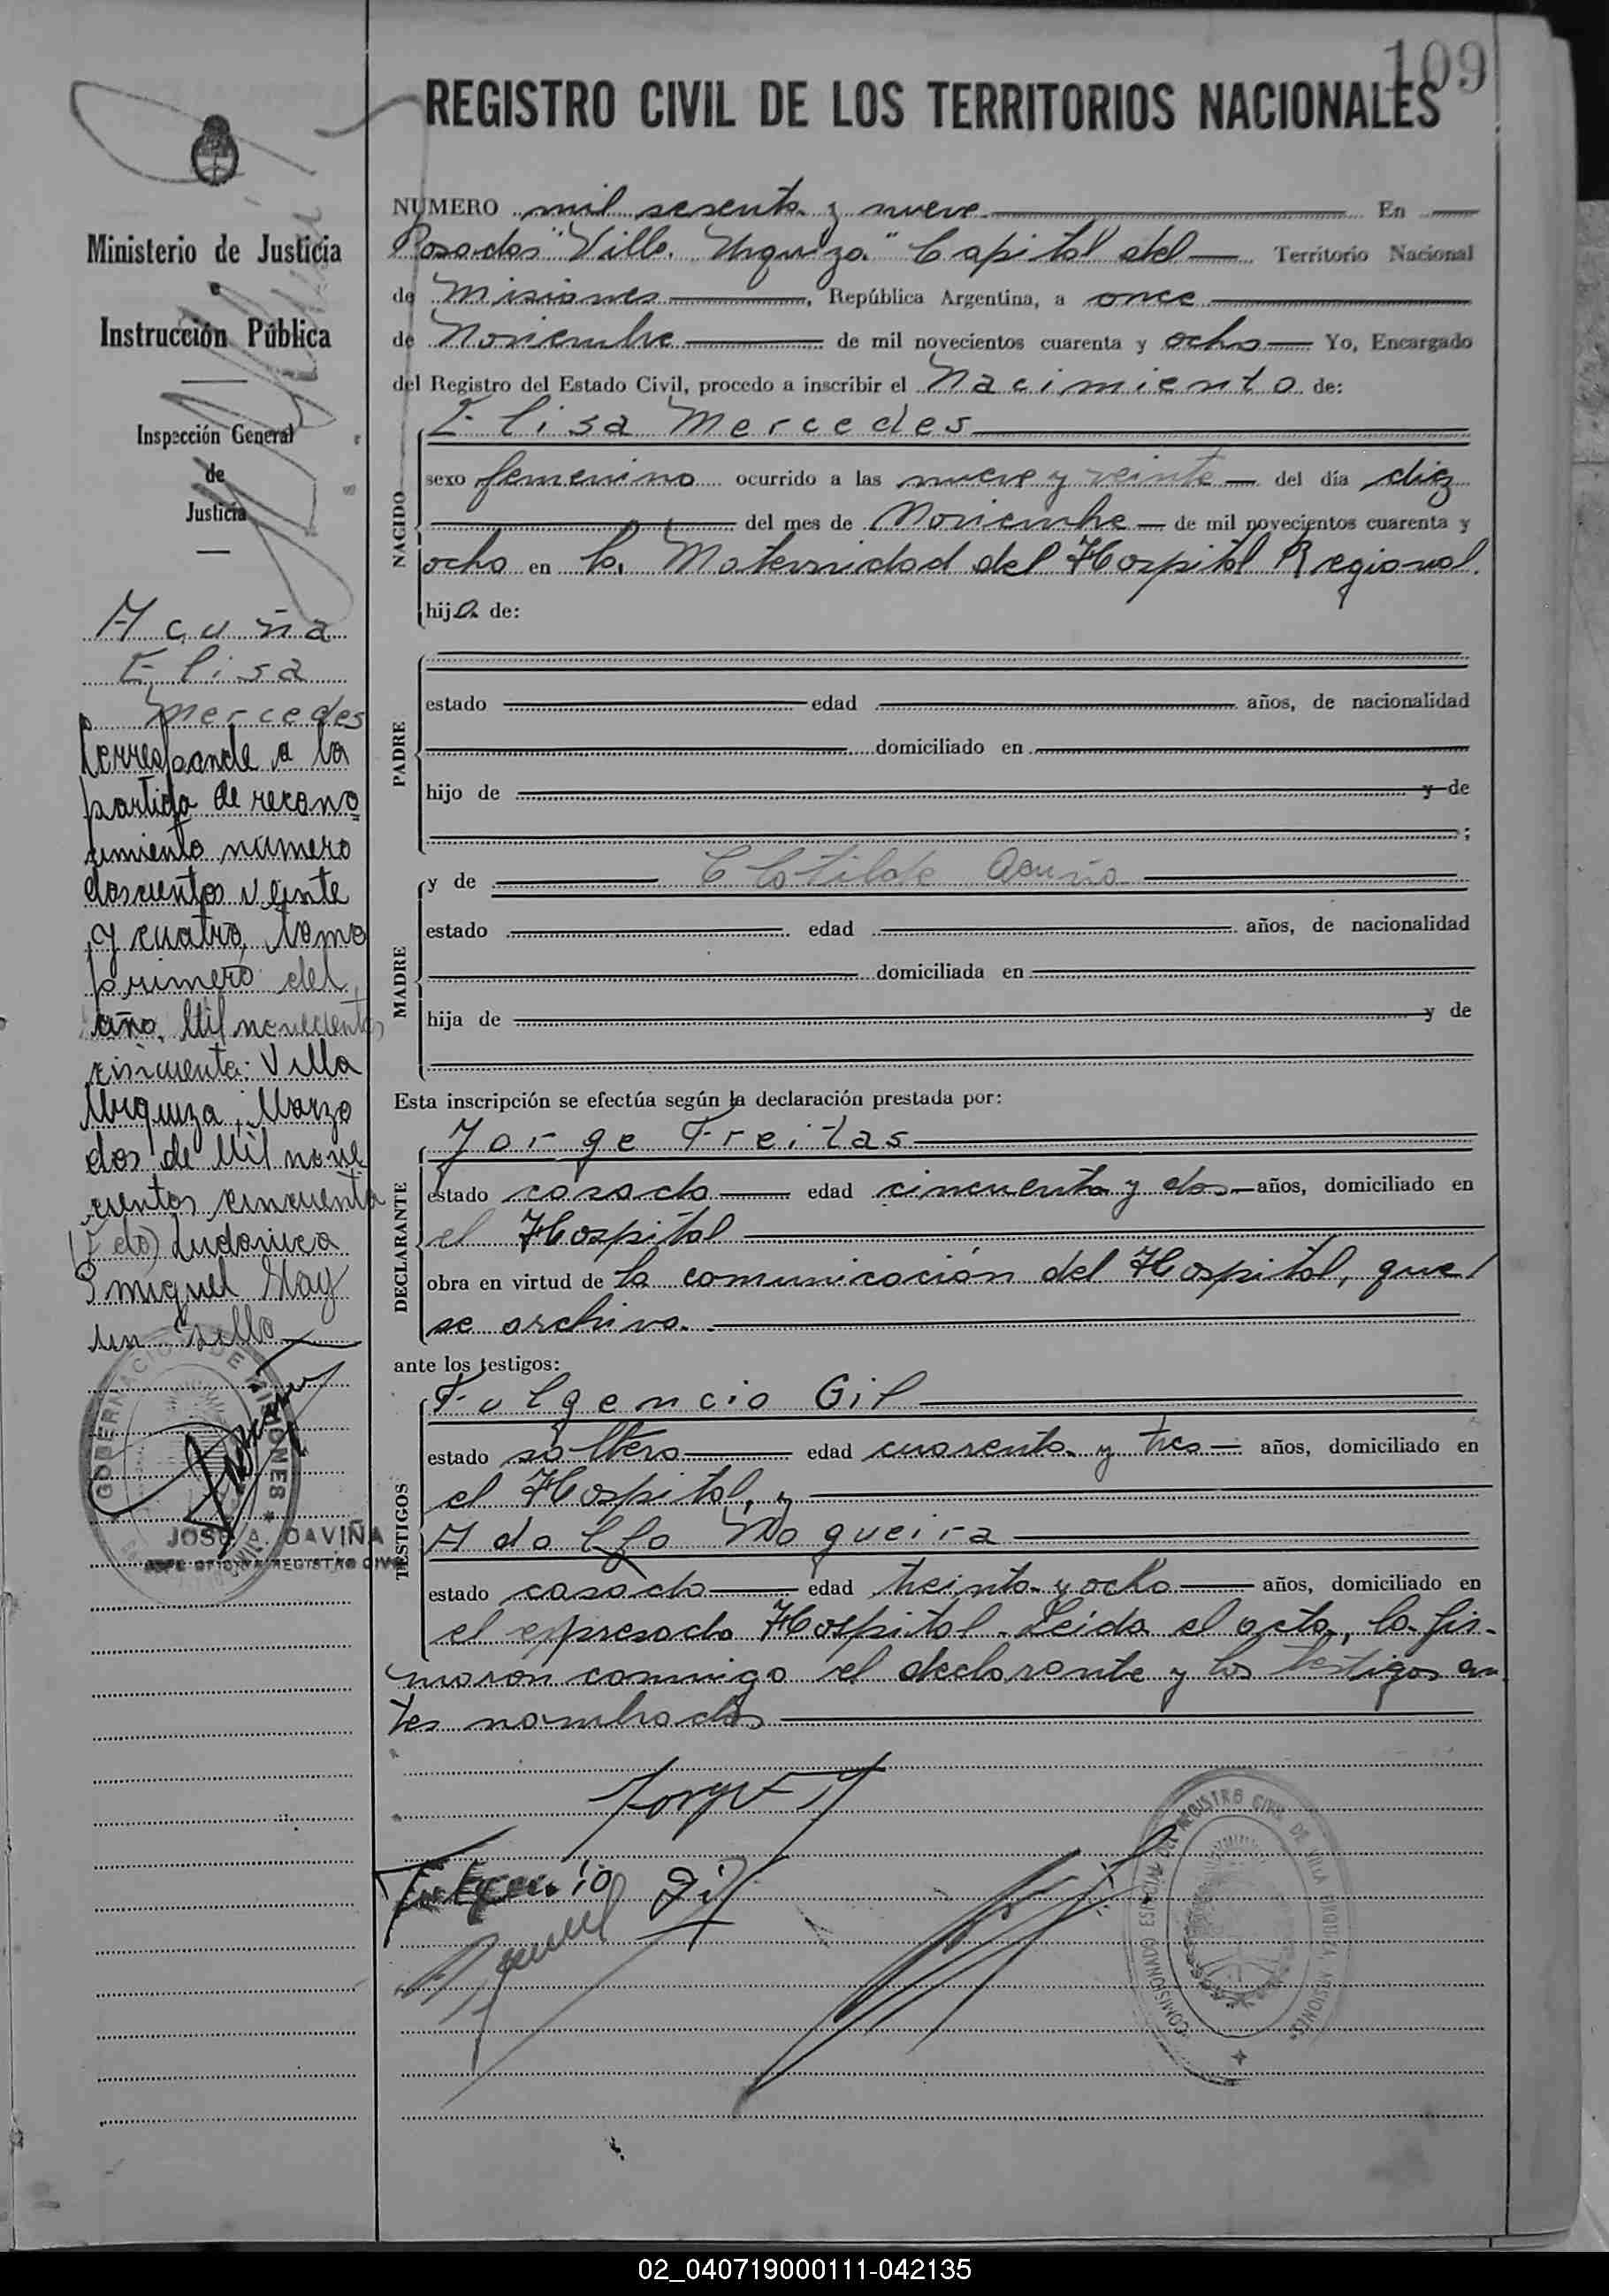 109
REGISTRO CIVIL DE LOS TERRITORIOS NACIONALES
Ministerio de Justicia
e
Instrucción Pública
Inspección General
de
Justicia
Acuña
Elisa
Mercedes
Corresponde a la
partida de recono
cimiento número
doscientos veinte
y cuatro, tomo
primero del
año, Mil novecientos
cincuenta: Villa
Urquiza, Marzo
dos de Mil nove
cientos cincuenta
(Fdo) Ludovico
miguel
un sello
GOBERNACION DE MISIONES
JOSE A. DAVIÑA
JEFE OFICINA REGISTRO CIVIL
NUMERO mil sesenta y nueve En
Posadas "Villa Urquiza" Capital del Territorio Nacional
de Misiones, República Argentina, a once
de Noviembre de mil novecientos cuarenta y ocho Yo, Encargado
del Registro del Estado Civil, procedo a inscribir el Nacimiento de:
NACIDO
Elisa Mercedes
sexo femenino ocurrido a las nueve y veinte del día diez
del mes de Noviembre de mil novecientos cuarenta y
ocho en la Maternidad del Hospital Regional.
hija de:
PADRE
estado edad años, de nacionalidad
domiciliado en
hijo de y de
;
MADRE
y de Clotilde Acuña
estado edad años, de nacionalidad
domiciliada en
hija de y de
Esta inscripción se efectúa según la declaración prestada por:
DECLARANTE
Jorge Freitas
estado casado edad cincuenta y dos años, domiciliado en
el Hospital
obra en virtud de la comunicación del Hospital, que
se archiva.
ante los testigos:
TESTIGOS
Fulgencio Gil
estado soltero edad cuarenta y tres años, domiciliado en
el Hospital, y
Adolfo Nogueira
estado casado edad treinta y ocho años, domiciliado en
el expresado Hospital. Leída el acta, la fir-
maron conmigo el declarante y los testigos an
tes nombrados
Jorge F
Fulgencio Gil
COMISIONADO ESPECIAL DEL REGISTRO CIVIL DE VILLA URQUIZA MISIONES
02_040719000111-042135